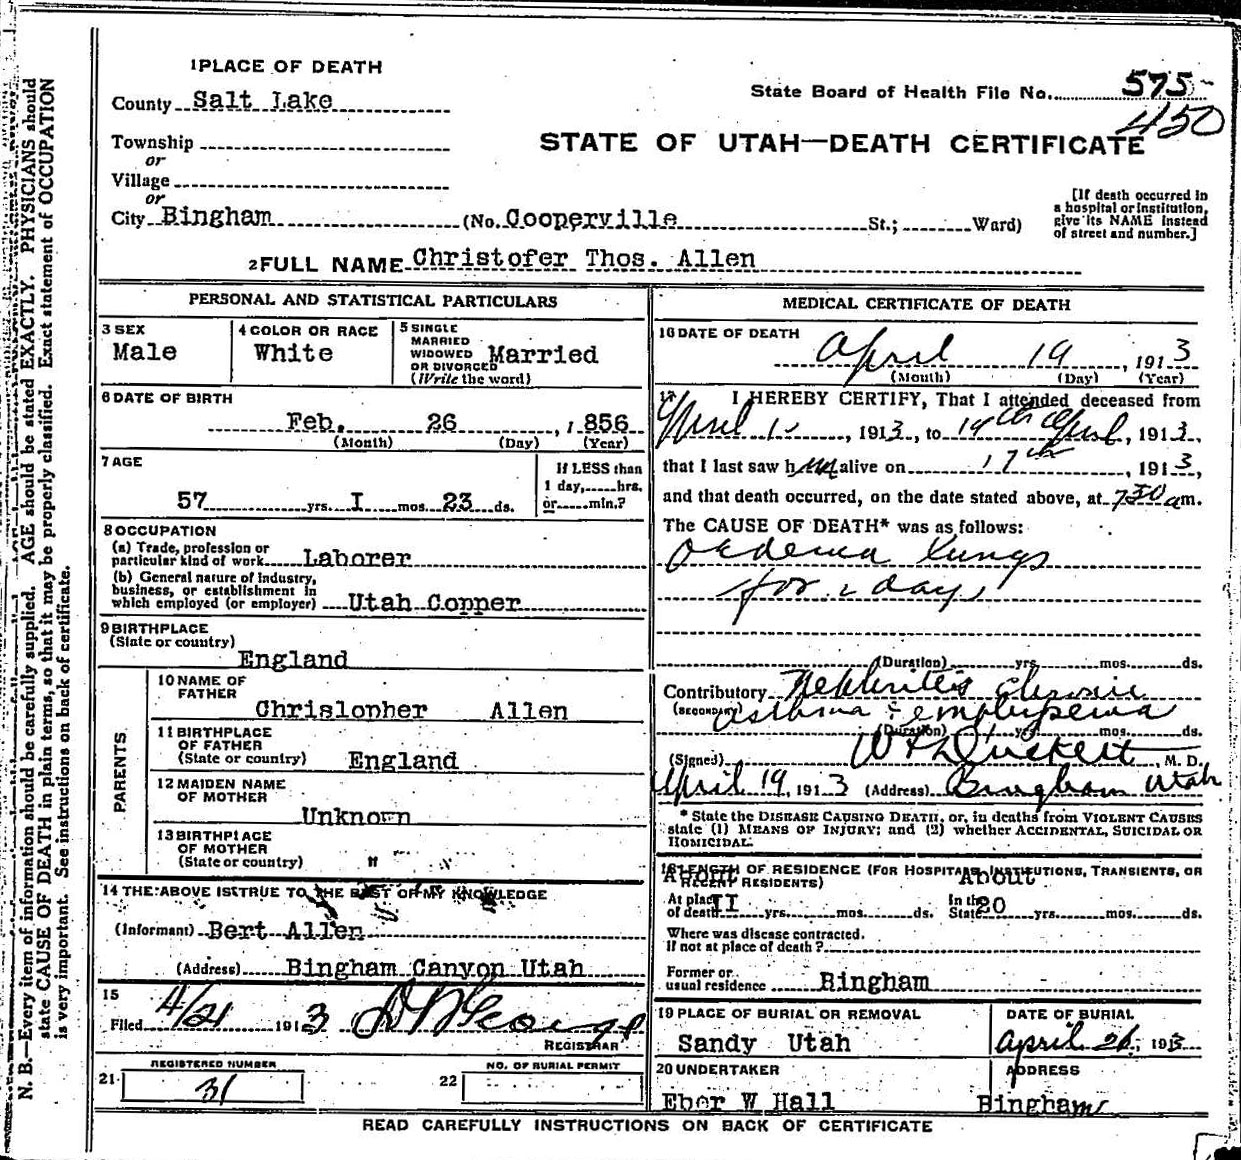 1 PLACE OF DEATH
County Salt Lake
Township
or
Village
or
City Bingham (No. Cooperville St.; Ward)
State Board of Health File No. 575
450
STATE OF UTAH—DEATH CERTIFICATE
[If death occurred in
a hospital or institution,
give its NAME instead
of street and number.]
2 FULL NAME Christofer Thos. Allen
PERSONAL AND STATISTICAL PARTICULARS
3 SEX
Male
4 COLOR OR RACE
White
5 SINGLE
MARRIED
WIDOWED
OR DIVORCED
(Write the word)
Married
6 DATE OF BIRTH
Feb. 26, 1856
(Month) (Day) (Year)
7 AGE
57 yrs. I mos. 23 ds.
If LESS than
1 day, hrs.
or min.?
8 OCCUPATION
(a) Trade, profession or
particular kind of work Laborer
(b) General nature of industry,
business, or establishment in
which employed (or employer) Utah Copper
9 BIRTHPLACE
(State or country)
England
PARENTS
10 NAME OF
FATHER
Chrislopher Allen
11 BIRTHPLACE
OF FATHER
(State or country) England
12 MAIDEN NAME
OF MOTHER
Unknown
13 BIRTHPLACE
OF MOTHER
(State or country) "
14 THE ABOVE IS TRUE TO THE BEST OF MY KNOWLEDGE
(Informant) Bert Allen
(Address) Bingham Canyon Utah
15
Filed 4/21 1913
REGISTRAR
REGISTERED NUMBER
21 31
NO. OF BURIAL PERMIT
22
MEDICAL CERTIFICATE OF DEATH
16 DATE OF DEATH
April 19, 1913
(Month) (Day) (Year)
17 I HEREBY CERTIFY, That I attended deceased from
April 1, 1913, to 19th April, 1913,
that I last saw him alive on 17th, 1913,
and that death occurred, on the date stated above, at 730 am.
The CAUSE OF DEATH* was as follows:
Oedema Lungs
for 2 days
(Duration) yrs. mos. ds.
Contributory Nephritis Chronic
(SECONDARY) Asthma & emphysema
(Duration) yrs. mos. ds.
(Signed) M. D.
April 19, 1913 (Address) Bingham Utah
* State the DISEASE CAUSING DEATH, or, in deaths from VIOLENT CAUSES
state (1) MEANS OF INJURY; and (2) whether ACCIDENTAL, SUICIDAL OR
HOMICIDAL.
18 LENGTH OF RESIDENCE (FOR HOSPITALS, INSTITUTIONS, TRANSIENTS, OR
RECENT RESIDENTS)
About About
At place
of death II yrs. mos. ds. In the
State 20 yrs. mos. ds.
Where was disease contracted.
If not at place of death?
Former or
usual residence Bingham
19 PLACE OF BURIAL OR REMOVAL
Sandy Utah
DATE OF BURIAL
April 1913
20 UNDERTAKER
Eber W Hall
ADDRESS
Bingham
READ CAREFULLY INSTRUCTIONS ON BACK OF CERTIFICATE
N. B.—Every item of information should be carefully supplied. AGE should be stated EXACTLY. PHYSICIANS should
state CAUSE OF DEATH in plain terms, so that it may be properly classified. Exact statement of OCCUPATION
is very important. See instructions on back of certificate.